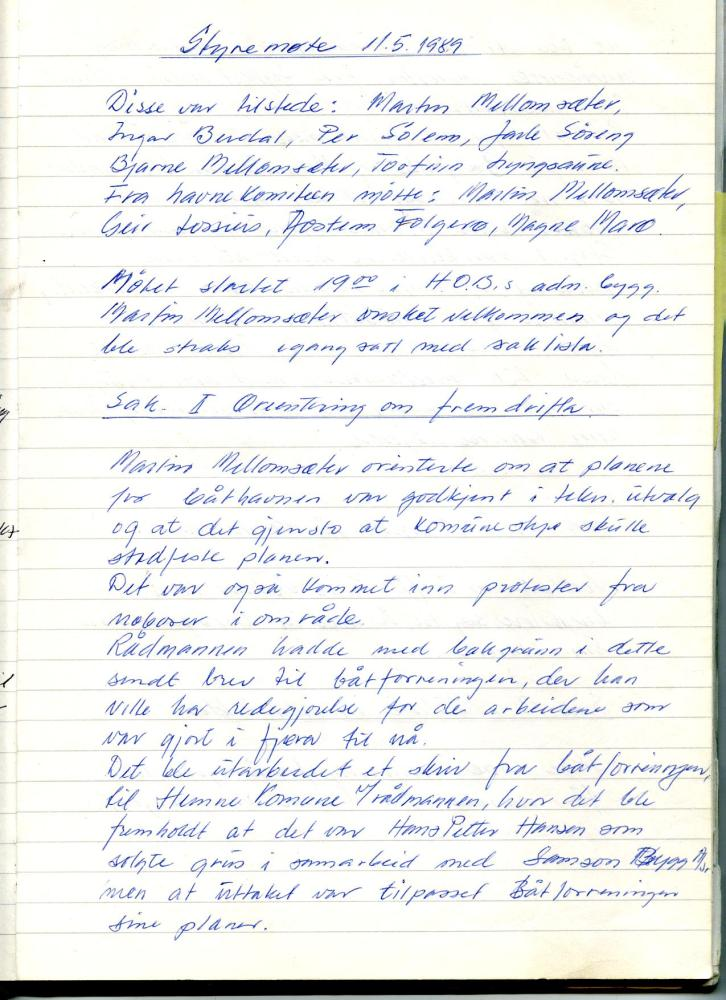 Styremøte 11.5.1989
Disse var tilstede: Martin Mellomsæter,
Ingar Berdal, Per Solem, Jarle Søreng
Bjarne Mellomsæter, Torfinn Lyngsaune.
Fra havnekomiteen møtte: Martin Mellomsæter,
Geir Lossius, Jostein Folgerø, Magne Marø.
Møtet startet 19⁰⁰ i H.O.B.s adm. bygg.
Martin Mellomsæter ønsket velkommen og det
ble straks igangsatt med saklista.
Sak. I Orientering om fremdrifta.
Martin Mellomsæter orienterte om at planene
for båthavnen var godkjent i tekn. utvalg
og at det gjensto at komunestyre skulle
stadfeste planen.
Det var også kommet inn protester fra
naboer i område.
Rådmannen hadde med bakgrunn i dette
sendt brev til båtforreningen, der han
ville ha redegjørelse for de arbeidene som
var gjort i fjæra til nå.
Det ble utarbeidet et skriv fra båtforreningen,
til Hemne Komune v/rådmannen, hvor det ble
fremholdt at det var Hans Petter Hansen som
solgte grus i samarbeid med Samson Bygg A/s,
men at uttaket var tilpasset Båtforreningen
sine planer.